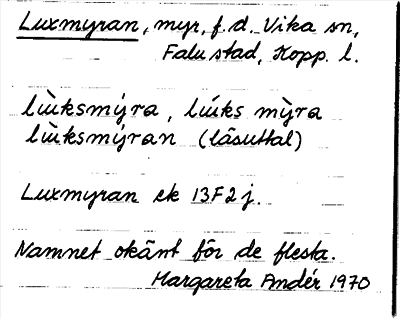 Luxmyran, myr, f.d. Vika sn,
Falu stad, Kopp. l.
lùksmýra, lúks mỳra
lùksmýran (läsuttal)
Luxmyran ek 13F2j.
Namnet okänt för de flesta.
Margareta Andér 1970